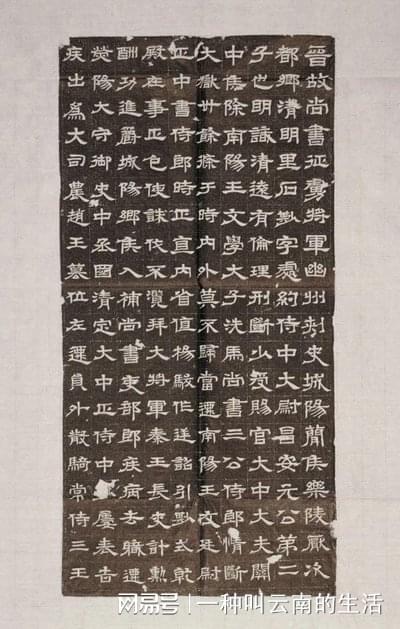 晉故尚書征虜將軍幽州刺史城陽簡侯樂陵厭次
都鄉清明里石尠字處約侍中大尉昌安元公第二
子也明識清遠有倫理刑斷少受賜官大中大夫關
中侯除南陽王文學大子洗馬尚書三公侍郎情斷
大獄卅餘條于時内外莫不歸當遷南陽王友廷尉
正中書侍郎時正直内省值楊駿作逆詔引尠式乾
殿在事正色使誅伐不濫拜大將軍秦王長史計勳
酬功進爵城陽鄉侯入補尚書吏部郎疾病去職遷
滎陽大守御史中丞國清定大中正侍中屢表告
疾出為大司農趙王篡位左遷員外散騎常侍三王
网易号 | 一种叫云南的生活